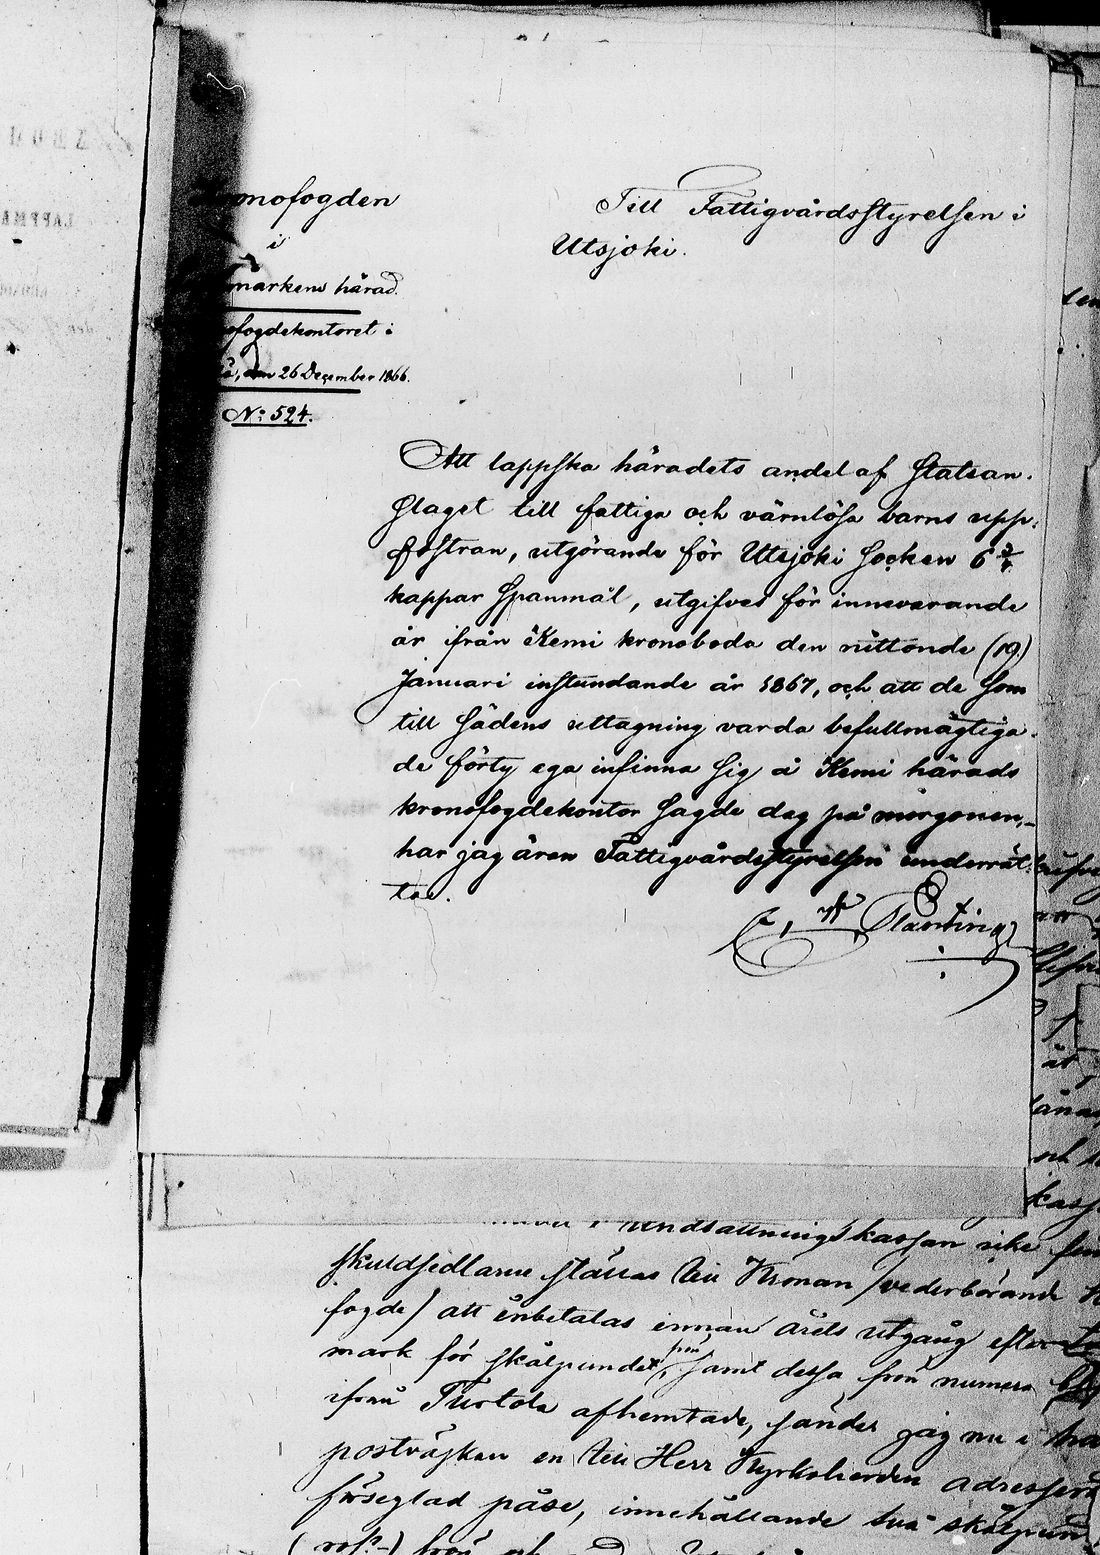 Kronofogden
i
markens härad.
ofogdekontoret i
den 26 December 1866.
No: 524.
Till Fattigvårdsstyrelsen i
Utsjoki.
Att lappska häradets andel af statsan-
slaget till fattiga och värnlösa barns upp-
fostran, utgörande för Utsjoki socken 6 3/4
kappar spanmål, utgifves för innevarande
år ifrån Kemi kronoboda den nittonde (19)
Januari instundande år 1867, och att de som
till sädens uttagning varda befullmägtiga-
de förty ega infinna sig å Kemi härads
kronofogdekontor sagde dag på morgonen,-
har jag äran Fattigvårdsstyrelsen underrät-
ta.
Planting
undsättningskassan icke
skuldsedlarne ställas till Kronan /vederbörande
fogde/ att inbetalas innan årets utgång efter
mark för skålpundet, samt dessa frön numera
ifrån Turtola afhemtade, sänder jag nu i
postväskan en till Herr Kyrkoherden adresserad
förseglad påse, innehållande två skålpund